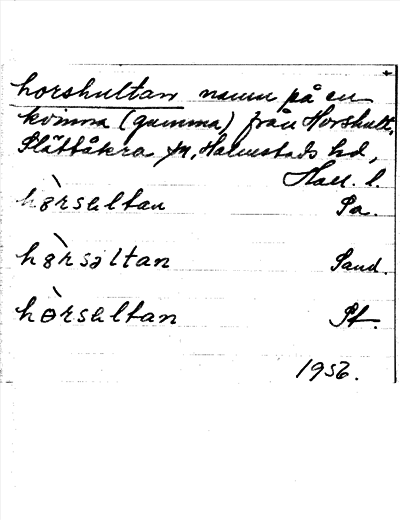 horshultan namn på en
kvinna (gumma) från Horshult,
Slättåkra sn, Halmstads hd,
Hall. l.
hòrsultan Sa.
hòrsəltan Sand.
hòrsultan St.
1956.